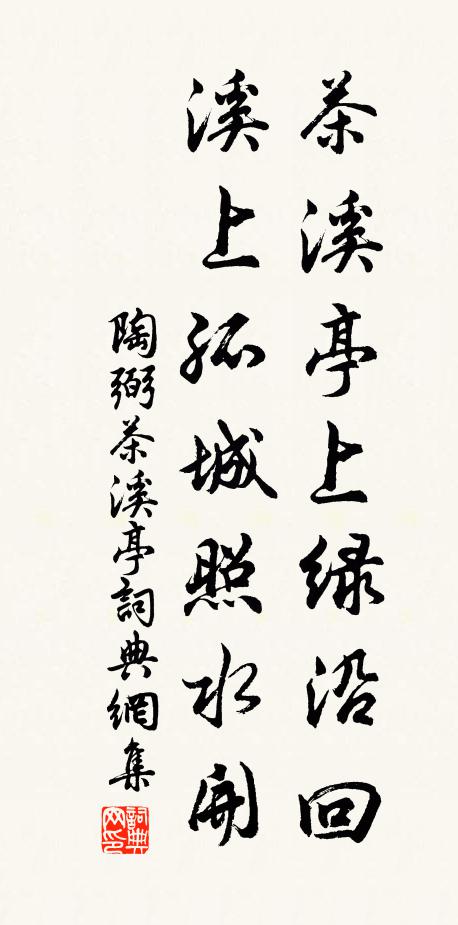 茶溪亭上綠沿回
溪上孤城照水開
陶弼茶溪亭詞典網集
詞典
网印